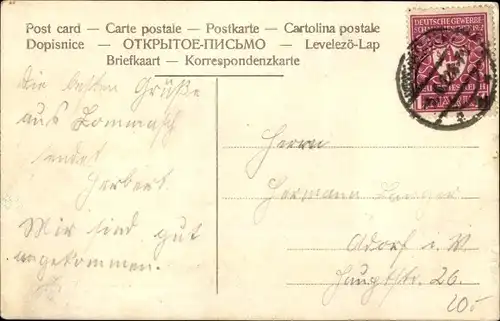 Post card — Carte postale — Postkarte — Cartolina postale
Dopisnice — ОТКРЫТОЕ-ПИСЬМО — Levelező-Lap
Briefkaart — Korrespondenzkarte
DEUTSCHE GEWERBE
Die besten Grüße
aus Lommatsch
sendet
Herbert.
Wir sind gut
angekommen.
Herrn
Hermann
Adorf i. V.
Hauptstr. 26.
205